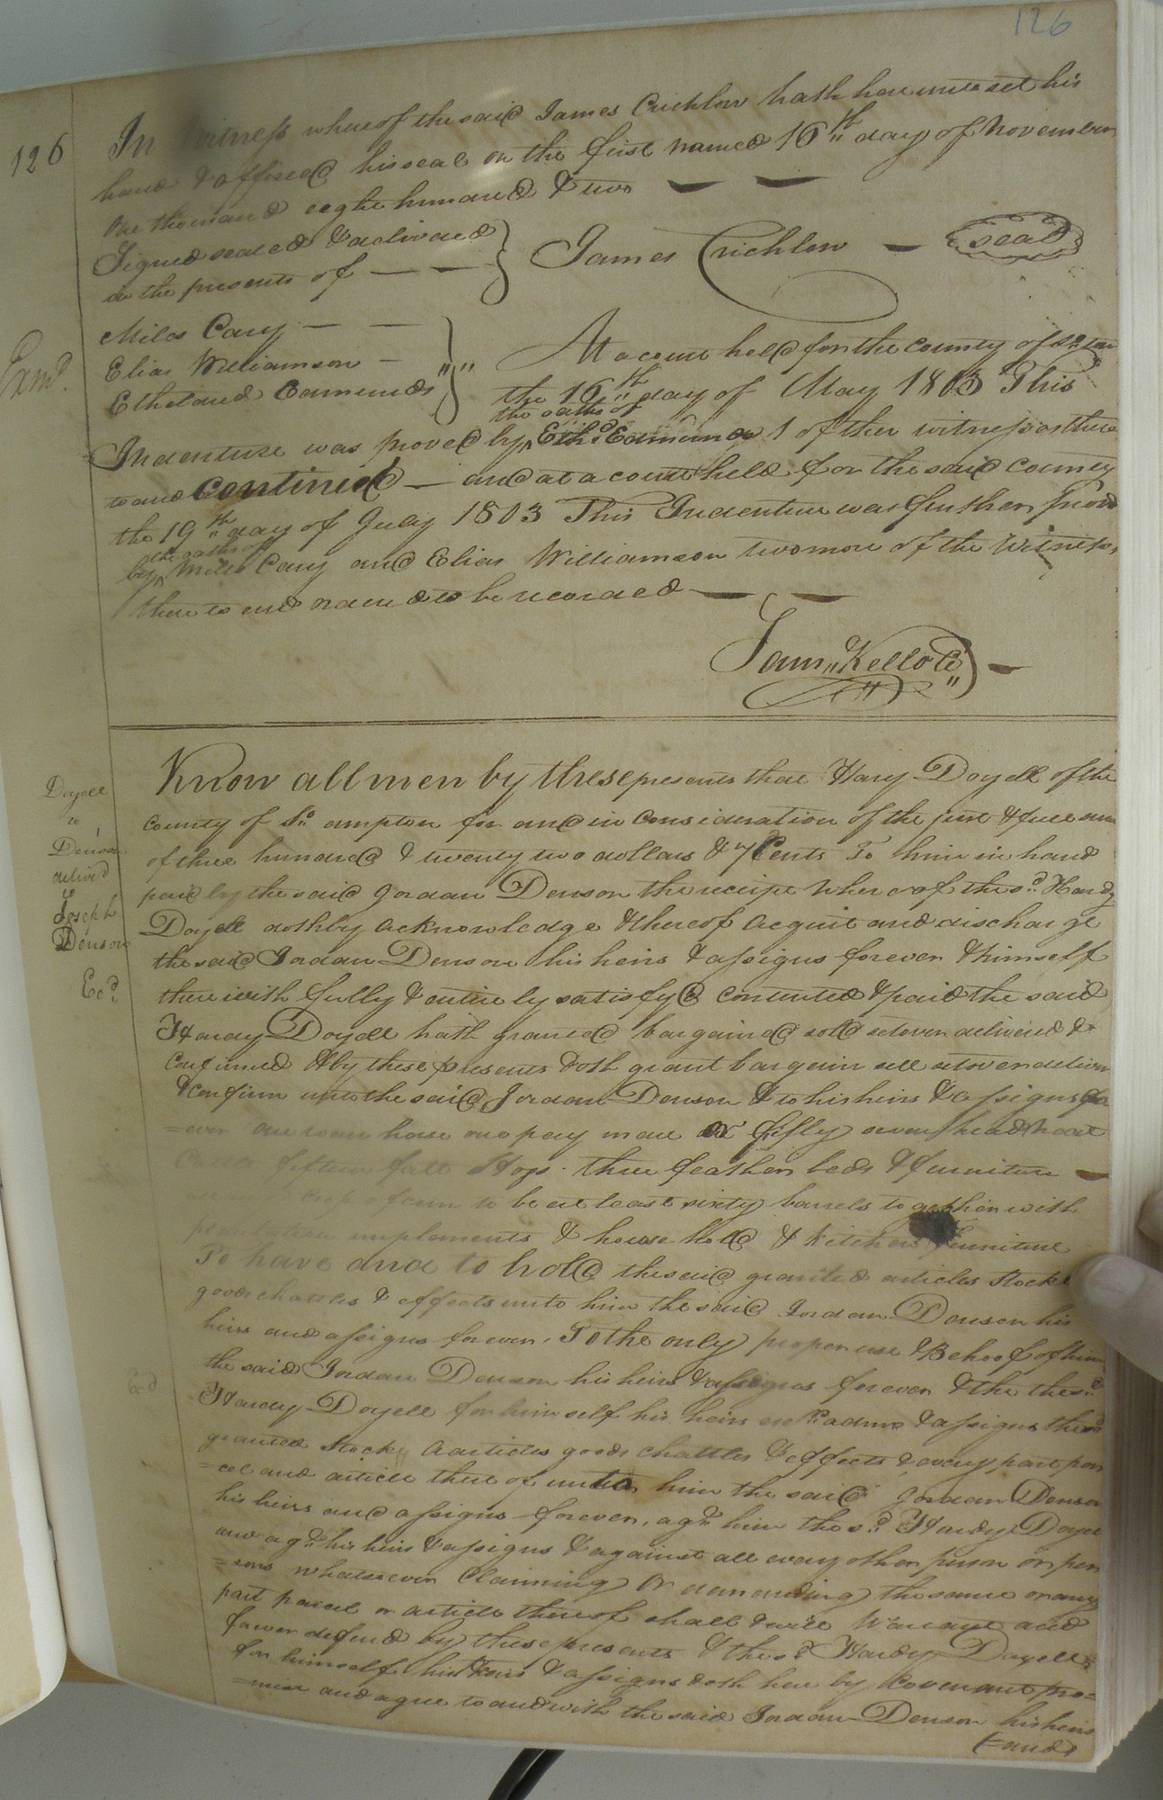 126
126
In Witness whereof the said James Crichlow hath hereunto set his
hand & affixed his seal on the first named 16th day of November
One thousand eight hundred & two
Signed sealed & delivered
in the presents of
James Crichlow seal
Miles Cary
Elias Williamson
Ethelred Edmunds
Exmd.
At a court held for the county of
the 16th day of May 1803 This
the oaths of
Indenture was proved by Ethd Edmunds 1 of the witnesses there
to and Continued and at a court held for the said County
the 19th day of July 1803 This Indenture was further proved
the oaths of
by Miles Cary and Elias Williamson two more of the Witnesses
thereto and ordered to be recorded
Sam Kello C
Doyell
to
Denson
delivd
to
Joseph
Denson
Exd.
Know all men by these presents that Hardy Doyell of the
county of So ampton for and in consideration of the just & full sum
of three hundred & twenty two dollars & 7 Cents To him in hand
paid by the said Jordan Denson the receipt Whereof the sd. Hardy
Doyell doth by acknowledge & thereof acquit and discharge
the said Jordan Denson his heirs & assigns forever & himself
therewith fully & entirely satisfyd contented & paid the said
Hardy Doyell hath granted bargained sold setover delivered &
confirmed & by these presents doth grant bargain sell setover deliver
& confirm unto the said Jordan Denson & to his heirs & assigns for
=ever one roan horse one pay mare fifty seven head
fifteen fall Hogs three feather beds & furniture
to be at least sixty barrels together with
implements & house hold & kitchen furniture
To have and to hold the said granted articles Stocks
goods chattles & effects unto him the said Jordan Denson his
heirs and assigns forever. To the only proper use & Behoof of him
the said Jordan Denson his heirs & assigns forever & the the sd.
Exd
Hardy Doyell for himself his heirs exr. admrs & assigns the sd
granted Stock articles goods chattles & effects & every part par
=cel and article there of unto him the said Jordan Denson
his heirs and assigns forever. agt. him the sd. Hardy Doyell
and agt. his heirs & assigns & against all every other person or per
=sons whatsoever Claiming Or demanding the same or any
part parcel or article thereof shall & will Warrant and
forever defend by these presents & the sd Hardy Doyell
for himself his heirs & assigns doth here by Covenant pro=
=mise and agree to and with the said Jordan Denson his heirs
(=and)